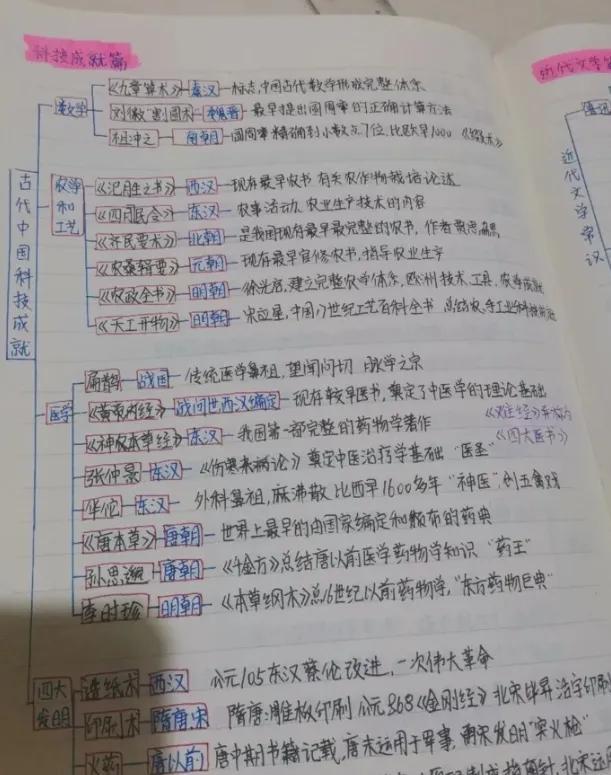 科技成就篇
古代中国科技成就
数学
《九章算术》 东汉 标志,中国古代数学形成完整体系
刘徽"割圆术" 魏晋 最早提出圆周率的正确计算方法
祖冲之 南朝 圆周率精确到小数点7位,比欧早1000 《缀术》
农学和工艺
《氾胜之书》 西汉 现存最早农书 有关农作物栽培论述
《四民月令》 东汉 农事活动、农业生产技术的内容
《齐民要术》 北朝 是我国现存最早最完整的农书,作者贾思勰
《农桑辑要》 元朝 现存最早官修农书,指导农业生产
《农政全书》 明朝 徐光启,建立完整农学体系,欧洲技术、工具、农学成就
《天工开物》 明朝 宋应星,中国17世纪工艺百科全书 总结农、手工业
医学
扁鹊 战国 传统医学鼻祖,望闻问切 脉学之宗
《黄帝内经》 战问世西汉编定 现存较早医书,奠定了中医学的理论基础
《神农本草经》 东汉 我国第一部完整的药物学著作
《难经》
《四大医书》
张仲景 东汉 《伤寒杂病论》奠定中医治疗学基础 "医圣"
华佗 东汉 外科鼻祖,麻沸散 比西早1600多年 "神医",创五禽戏
《唐本草》 唐朝 世界上最早的由国家编定和颁布的药典
孙思邈 唐朝 《千金方》总结唐以前医学药物学知识 "药王"
李时珍 明朝 《本草纲木》总16世纪以前药物学,"东方药物巨典"
四大发明
造纸术 西汉 公元105东汉蔡伦改进,一次伟大革命
印刷术 隋唐,宋 隋唐:雕板印刷 公元868《金刚经》北宋毕昇活字印刷
火药 唐以前 唐中期书籍记载,唐末运用于军事,南宋发明"突火枪"
指南针,北宋
近代文学
近代文学常识